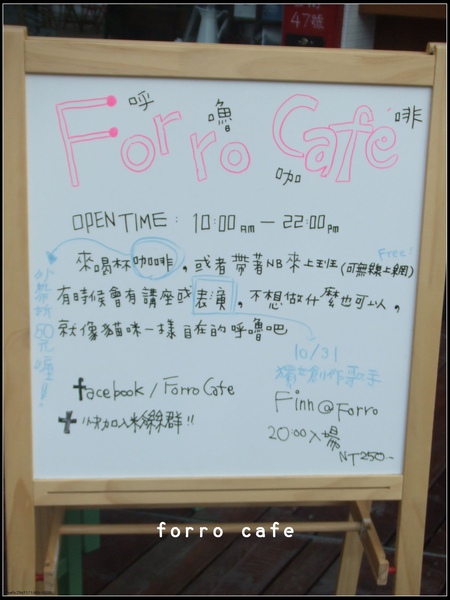 47號
Forro Cafe
呼嚕咖啡
OPEN TIME: 10:00 AM — 22:00 pm
Free!
來喝杯咖啡,或者帶著NB來上班(可無線上網)
有時候會有講座或表演,不想做什麼也可以,
就像貓咪一樣自在的呼嚕吧
外帶折50元喔!!
10/31
獨立創作歌手
Finn@Forro
20:00入場
NT250.-
facebook/Forro Cafe
快加入粉絲群!!
forro cafe